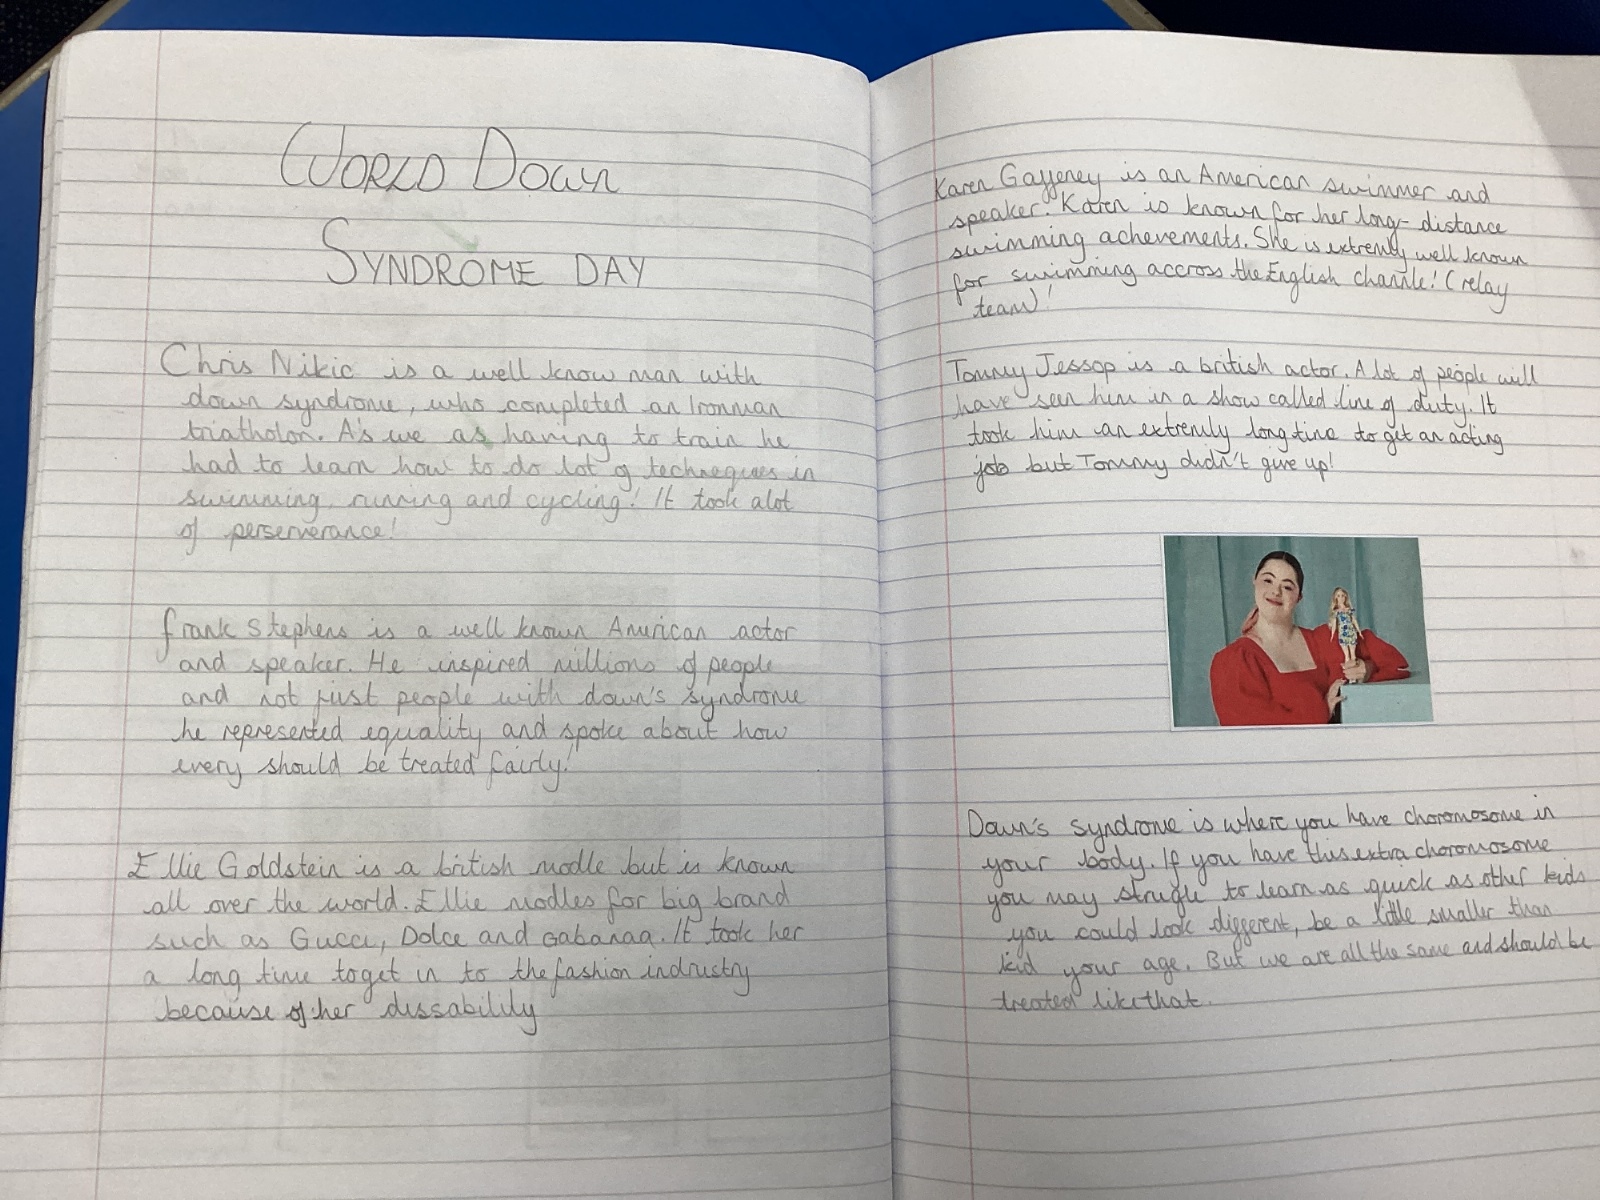 WORLD DOWN
SYNDROME DAY
Chris Nikic is a well know man with
down syndrome, who completed an Ironman
triatholon. As we as having to train he
had to learn how to do lot of techneques in
swimming, running and cycling! It took alot
of perserverance!
frank Stephens is a well known American actor
and speaker. He inspired millions of people
and not just people with down's syndrome
he represented equality and spoke about how
every should be treated fairly!
Ellie Goldstein is a british modle but is known
all over the world. Ellie modles for big brand
such as Gucci, Dolce and Gabanaa. It took her
a long time toget in to the fashion indrustry
because of her dissability
Karen Gaffeney is an American swimmer and
speaker. Karen is known for her long-distance
swimming achevements. She is extremly well known
for swimming accross the English channle! (relay
team)!
Tommy Jessop is a british actor. A lot of people will
have seen him in a show called line of duty. It
took him an extremly long time to get an acting
job but Tommy didn't give up!
Down's syndrome is where you have choromosome in
your body. If you have this extra choromosome
you may strugle to learn as quick as other kids
you could look different, be a little smaller than
kid your age. But we are all the same and should be
treated like that.